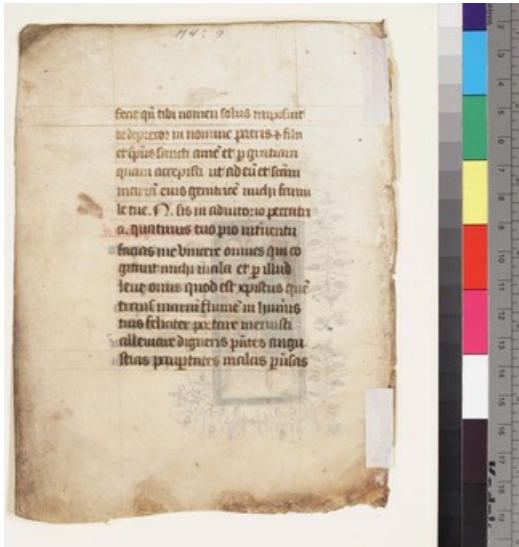 fecit qñ tibi nomen solus imposuit
te deprecor in nomine patris & filii
et sp̃us sancti amẽ et p gratiam
quam accepisti ut ad eũ et scãm
mariã eius genitricẽ michi famu
le tue. N. sis in adiutorio peccatri
a. quatinus tuo pio interuentu
facias me vincere omnes qui co
gitant michi mala et p illud
leue onus quod est xpistus quẽ
trans maris flumẽ in humeris
tuis feliciter portare meruisti
alleuiare digneris pñtes angu
stias paupertates malas